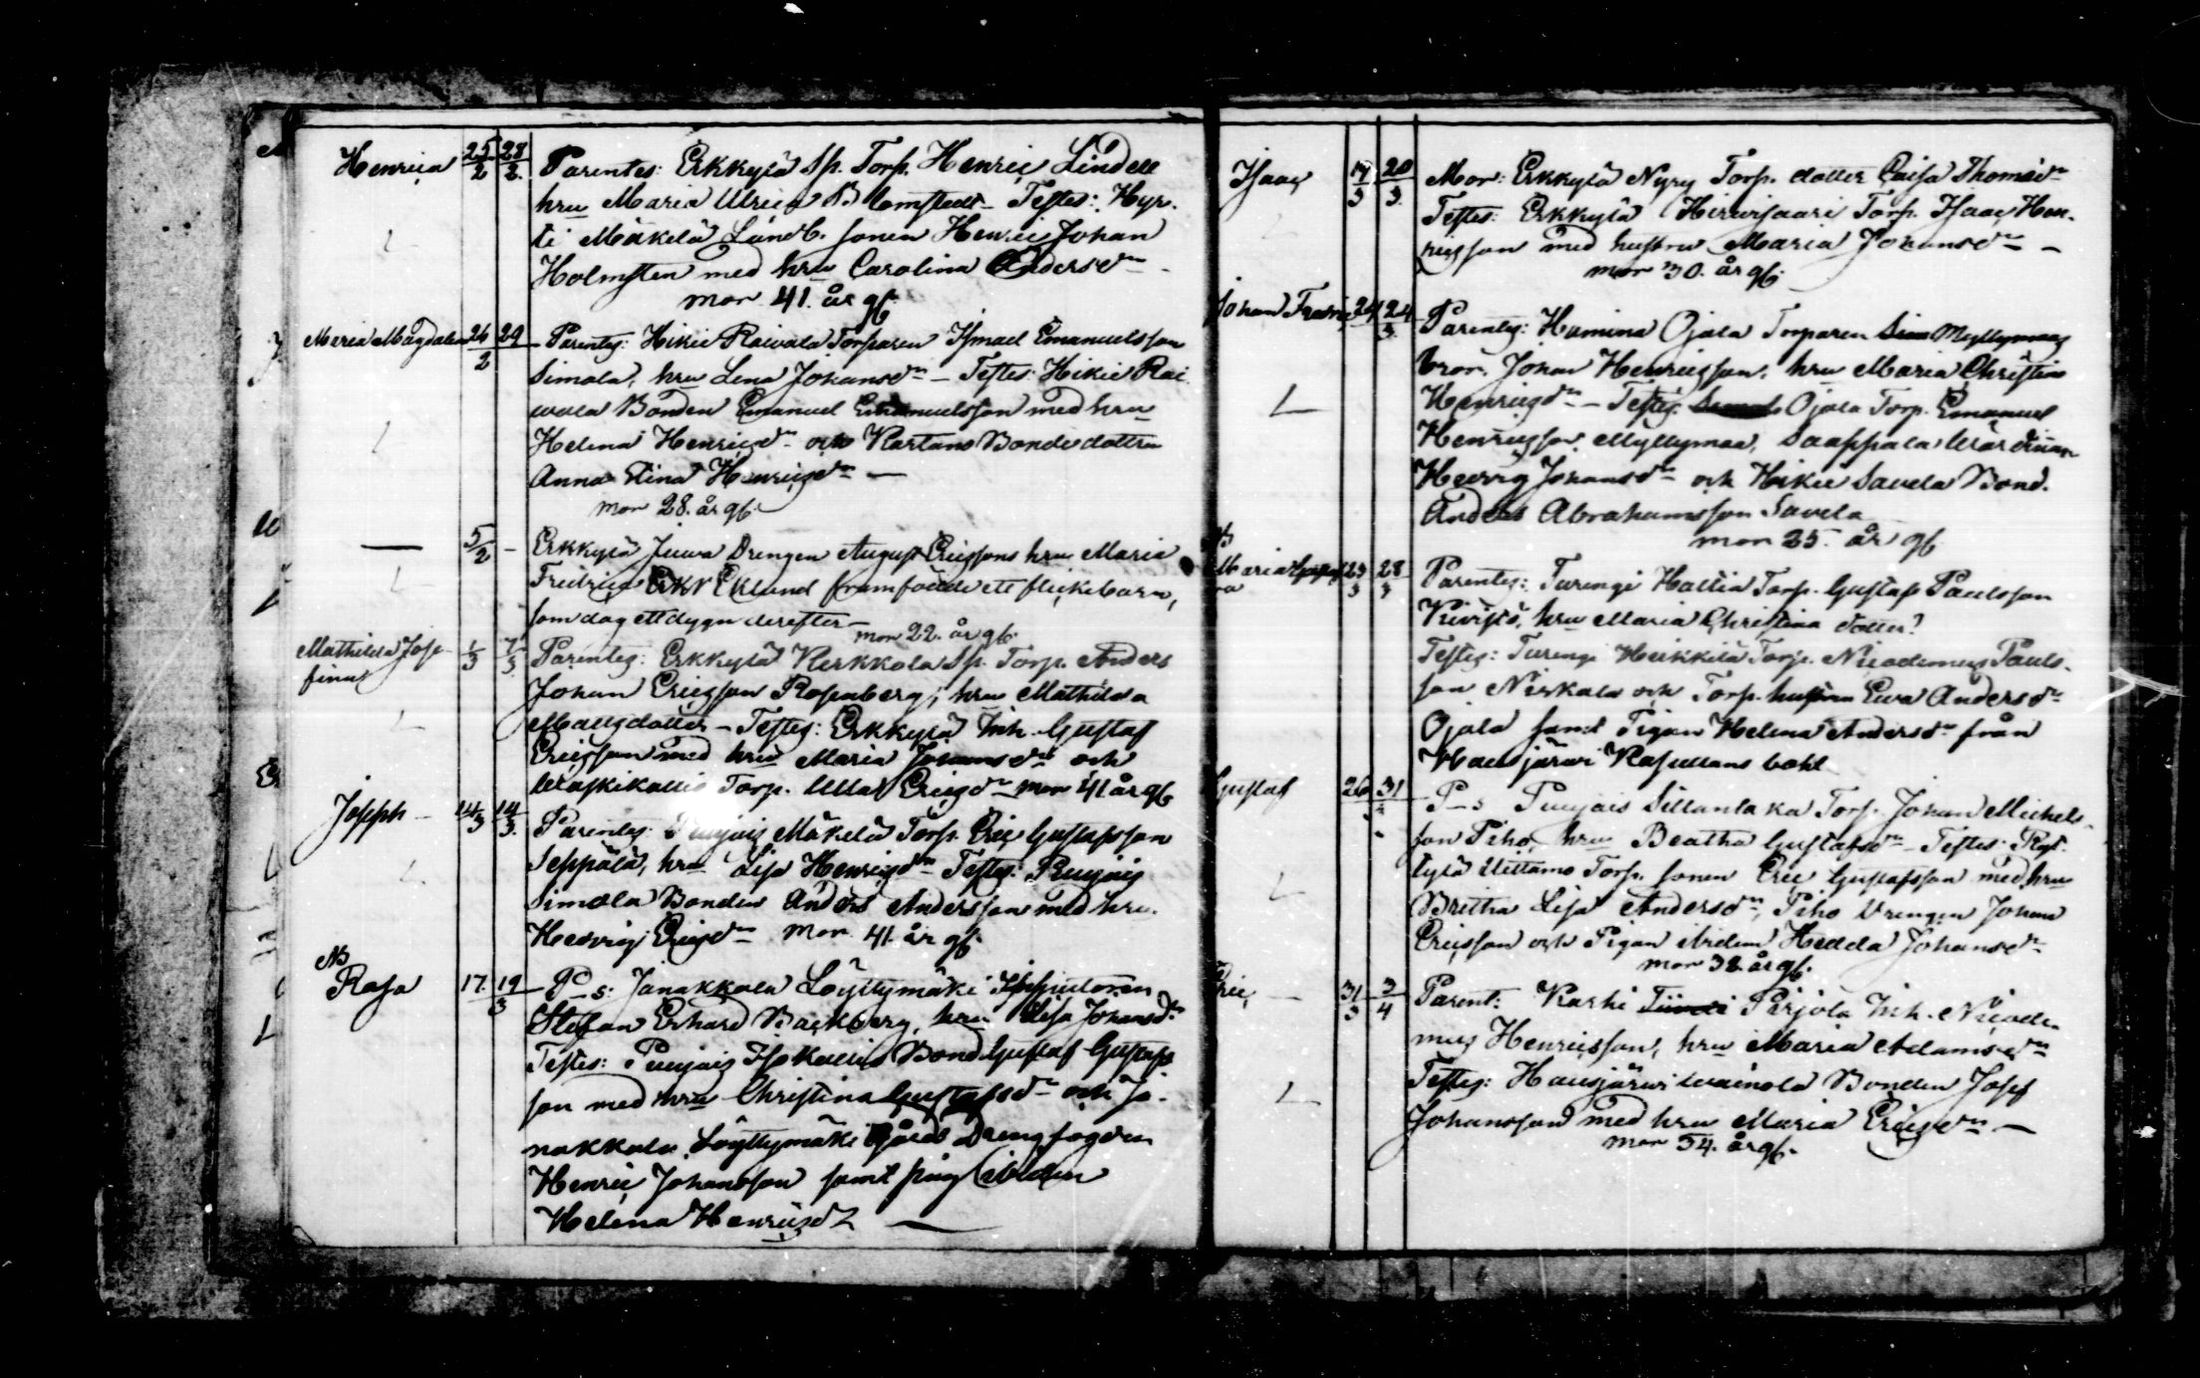 Henrica 25/2 28/2 Parentes: Erkkylä Sp. Torp. Henric Lindell
hru Maria Ulrica Blomstedt – Testes: Hyr-
ti Mäkelä Landb. sonen Henric Johan
Holmsten med hru Carolina Andersdr –
mor 41. år gf.
Maria Magdalena 26/2 29 Parentes: Hikie Raivala Torparen Ismael Emanuelsson
Simola, hru Lena Johansdr – Testes: Hikie Rai
vala Bonden Emanuel Emanuelsson med hru
Helena Henricsdr och Kartano Bondedottren
Anna Stina Henricsdr –
mor 28. år gf.
— 5/2 – Erkkylä Juva Drengen August Ericssons hru Maria
Fredrica Eklund framfödde ett flickebarn,
som dog ett dygn derefter –
mor 22. år gf.
Mathilda Jose- 1/3 7/3 Parentes: Erkkylä Kerkkola Sp. Torp. Anders
fina Johan Ericsson Rosenberg, hru Mathilda
Matsdotter – Testes: Erkkylä Inh. Gustaf
Ericsson med hru Maria Johansdr och
Waskikallio Torp. Ulla Ericsdr mor 41 år gf
Joseph – 14/3 14/3 Parentes: Puujais Mäkelä Torp. Eric Gustafsson
Seppälä, hru Lisa Henricsdr – Testes: Puujais
Simola Bonden Anders Andersson med hru
Hedvig Ericsdr mor 41. år gf.
NB
Rosa 17. 19/3 P–s: Janakkala Löyttymäki Inspectoren
Stefan Erhard Backberg, hru Lisa Johansdr
Testes: Puujais Isokallio Bond Gustaf Gustafs
son med hru Christina Gustafsdr och Ja-
nakkala Löyttymäki Gårds Drengfogden
Henric Johansson samt pig
Helena Henricsd
Isaac 17/3 20/3 Mor: Erkkylä Nyry Torp. dotter Caisa Thomasdr
Testes: Erkkylä Hirvisaari Torp. Isaac Hen-
ricsson med hustru Maria Johansdr –
mor 30. år gf.
Johan 24 24/3 Parentes: Hamina Ojala Torparen Myllymaas
bror Johan Henricsson, hru Maria Christina
Henricsdr – Testes: Ojala Torp. Emanuel
Henricsson Myllymaa, Saappala
Hedvig Johansdr och Hikie Savela Bond.
Anders Abrahamsson Savela
mor 25. år gf
Maria Gusta 23/3 28/3 Parentes: Turengi Hallia Torp. Gustaf Paulsson
va Kivistö, hru Maria Christina dotter?
Testes: Turengi Heikkilä Torp. Nicodemus Pauls-
son Niskala och Torp. hustrun Eva Andersdr
Ojala samt Pigan Helena Andersdr från
Hausjärvi Karjullans bohl
Gustaf 26 31 P–s Puujais Sillantaka Torp. Johan Michels-
son Piho, hru Beatha Gustafsdr – Testes: Ryt-
tylä Uittamo Torp. sonen Eric Gustafsson med hru
Britha Lisa Andersdr, Piho Drengen Johan
Ericsson och Pigan Hedda Johansdr
mor 38. år gf.
Eric – 31/3 3/4 Parent: Karhi Pirjola Inh. Nicode-
mus Henricsson, hru Maria Adamsdr
Testes: Hausjärvi Wainola Bonden Josef
Johansson med hru Maria Ericsdr –
mor 34. år gf.